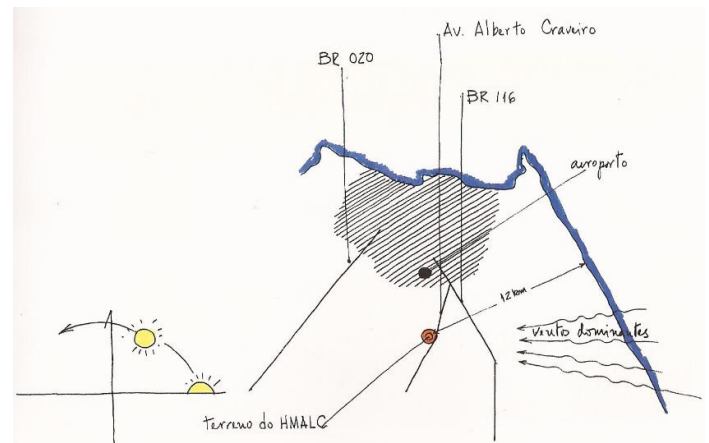 Av. Alberto Craveiro
BR 020
BR 116
aeroporto
12 km
vento dominantes
terreno do HMALC